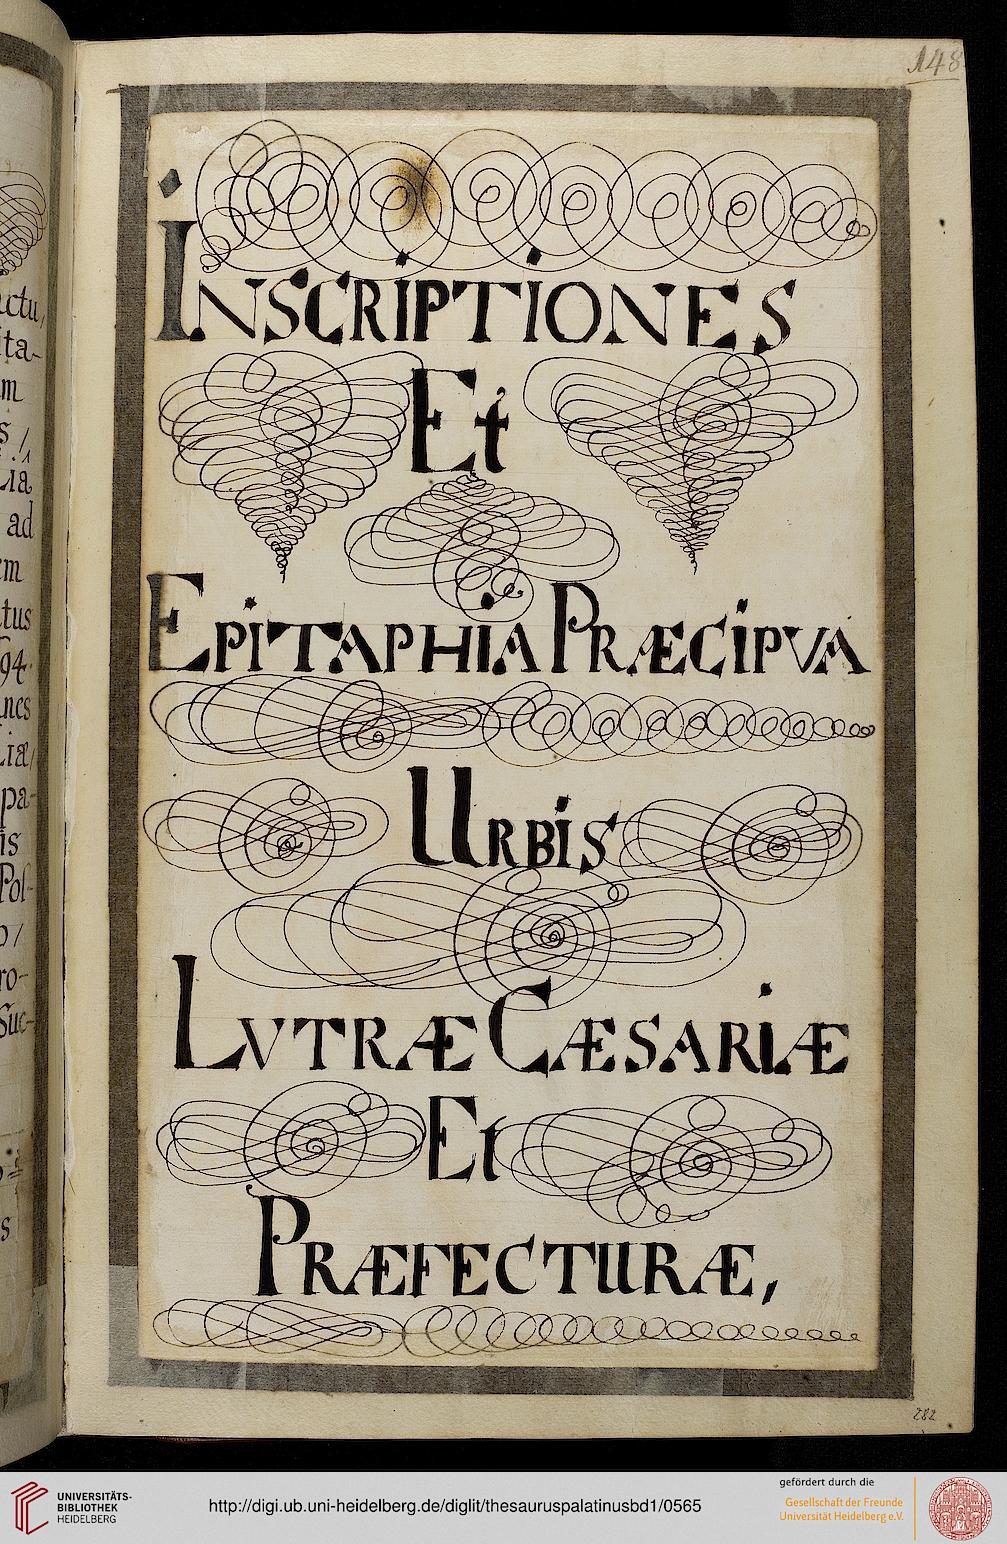 148
INSCRIPTIONES
Et
EPITAPHIA PRÆCIPVA
URBIS
LVTRÆ CÆSARIÆ
Et
PRÆFECTURÆ,
282
ctu,
ita-
m
s /
ia
ad
em
tus
94.
nes
iæ,
pa-
is
Pos-
o /
ro-
Suc-
s
UNIVERSITÄTS-
BIBLIOTHEK
HEIDELBERG
http://digi.ub.uni-heidelberg.de/diglit/thesauruspalatinusbd1/0565
gefördert durch die
Gesellschaft der Freunde
Universität Heidelberg e.V.